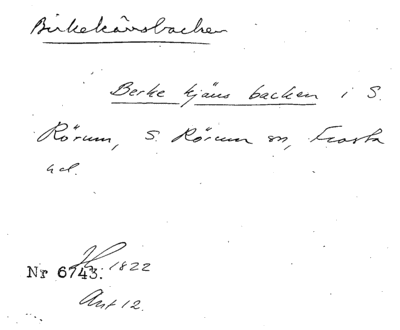 Birkekärsbacken
Berke kjäus backen i S.
Rörum, S. Rörum sn, Frosta
hd.
Nr 6743. 1822
Ant 12.